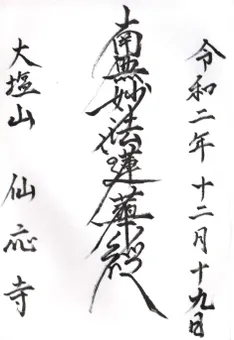 令和二年 十二月十九日
南無妙法蓮華経
大塩山 仙応寺